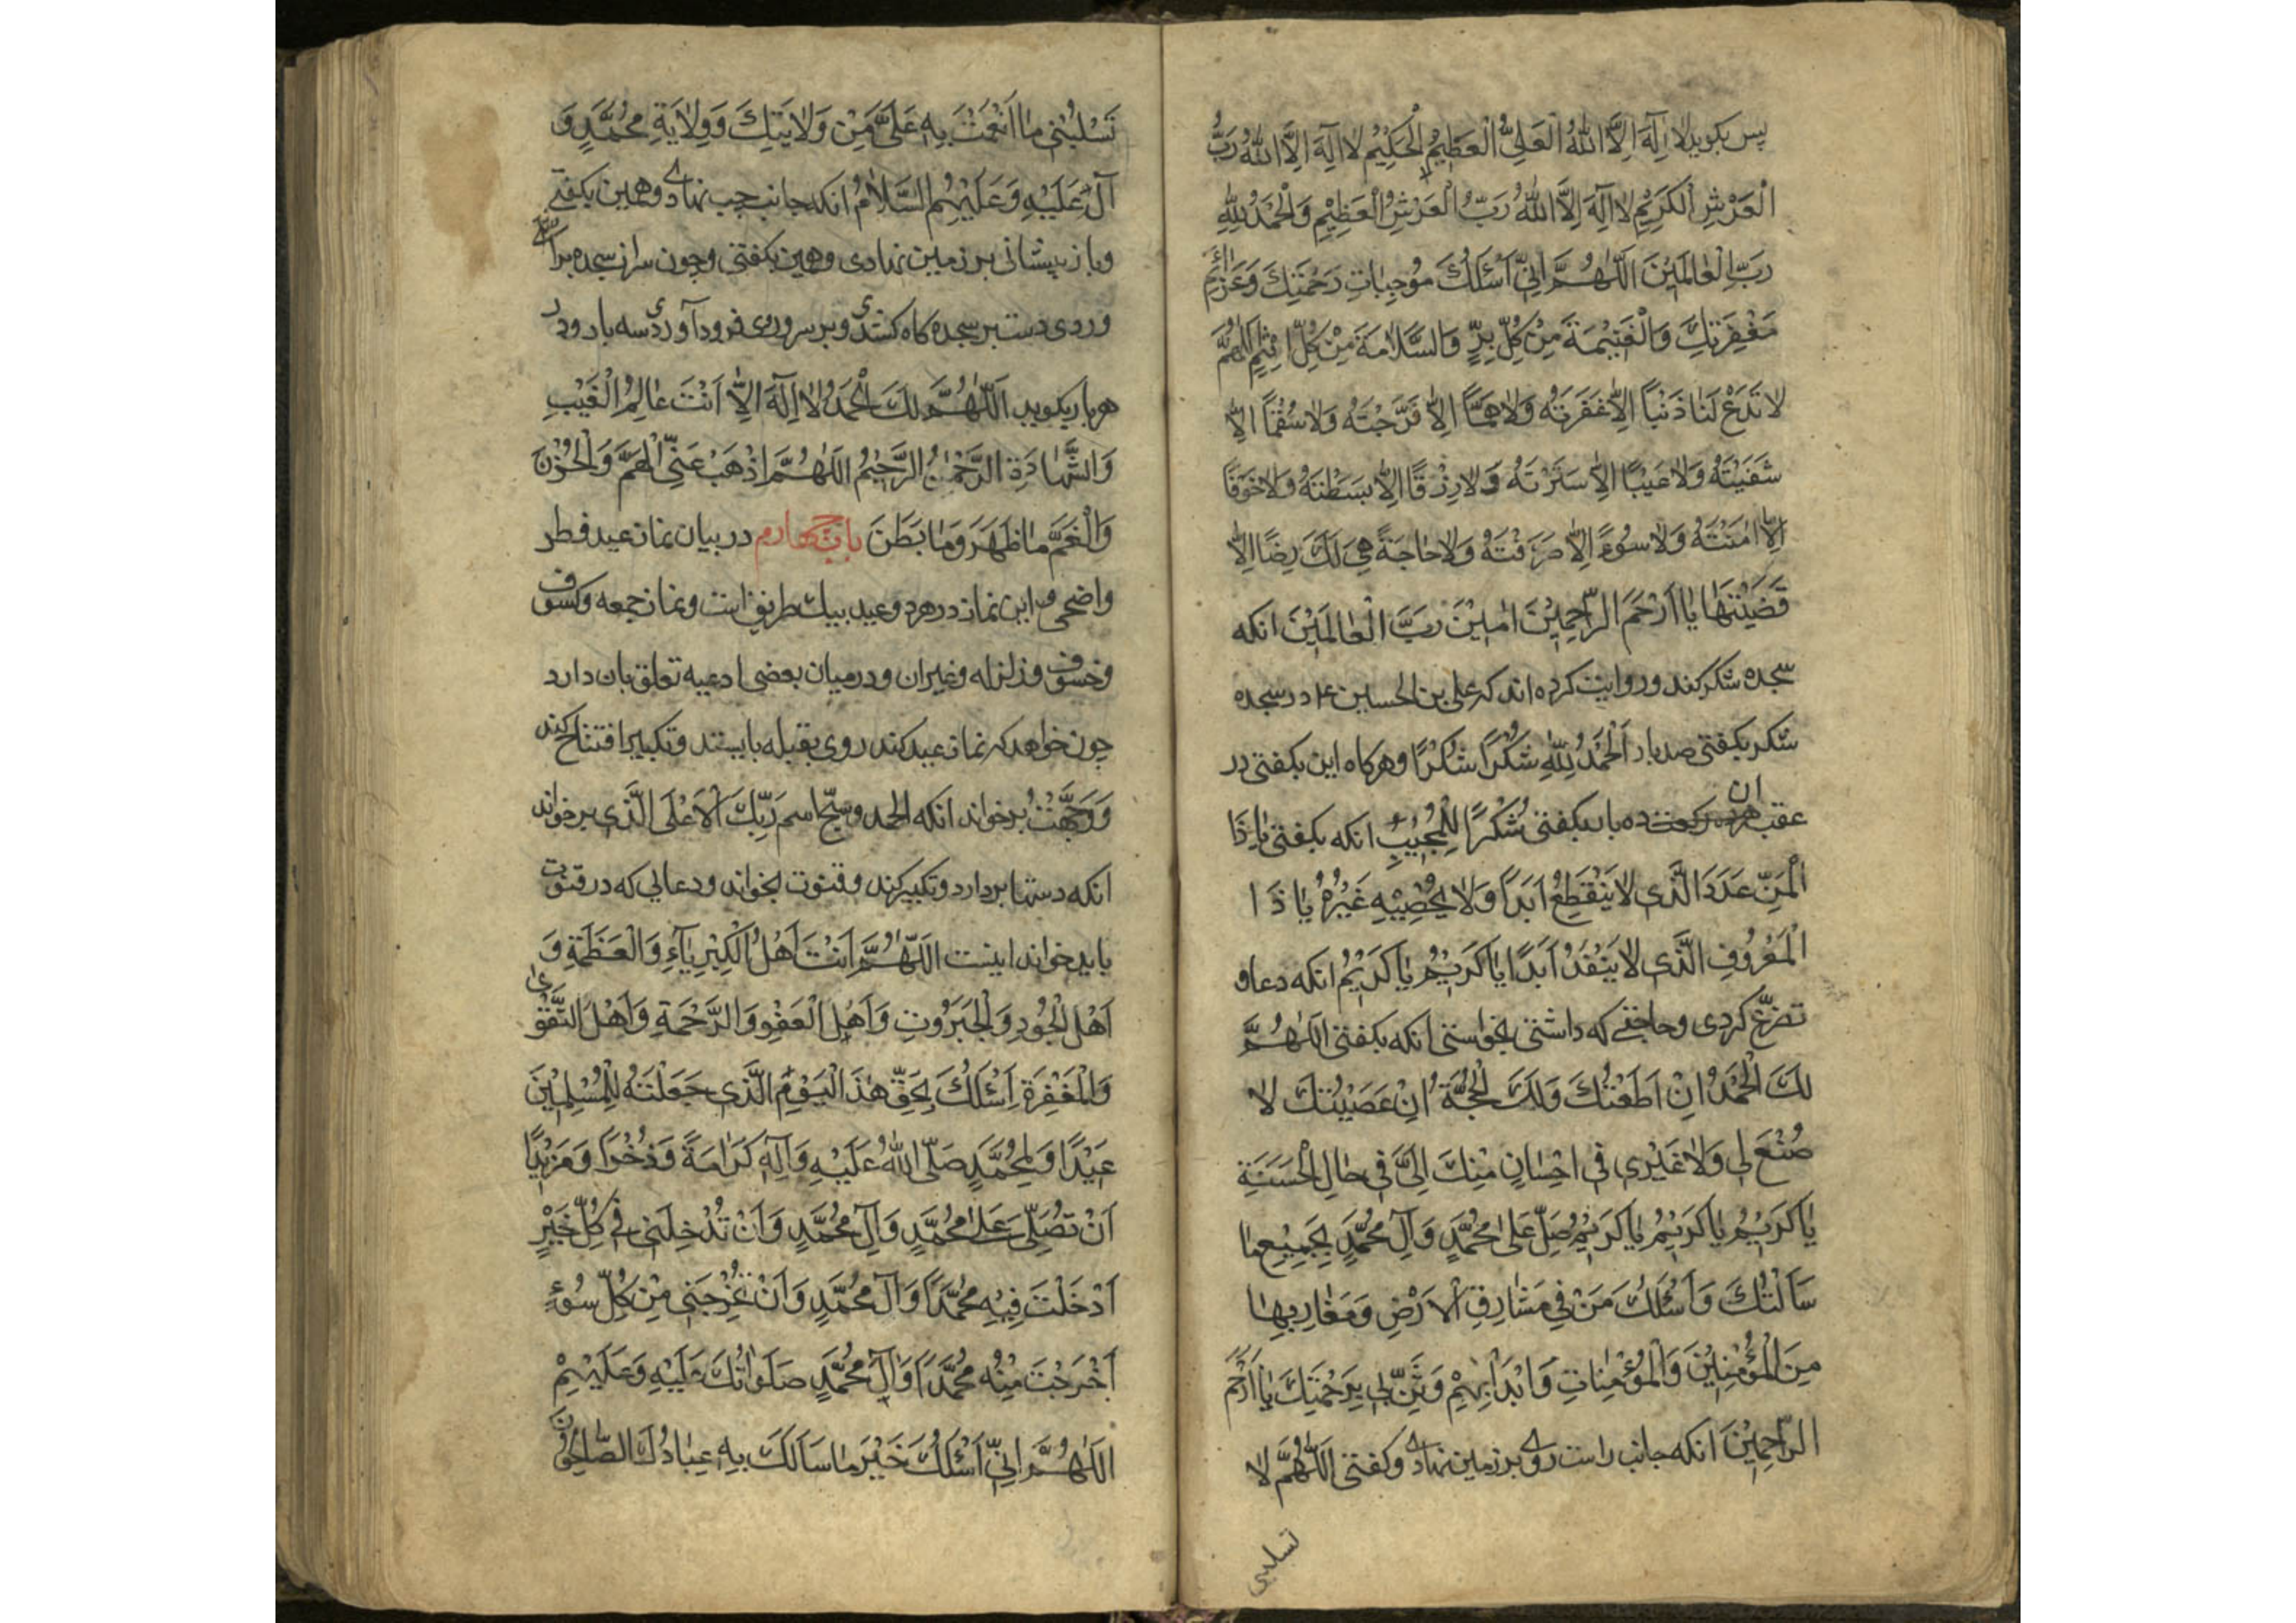 پس بکوید لا اِلٰهَ اِلَّا اللهُ الْعَلِیُّ الْعَظِیْمُ الْحَکِیْمُ لا اِلٰهَ اِلَّا اللهُ رَبُّ
الْعَرْشِ الْکَرِیْمِ لا اِلٰهَ اِلَّا اللهُ رَبُّ الْعَرْشِ الْعَظِیْمِ وَالْحَمْدُ لِلّٰهِ
رَبِّ الْعٰالَمِیْنَ اَللّٰهُمَّ اِنِّی اَسْئَلُکَ مُوْجِبٰاتِ رَحْمَتِکَ وَعَزٰائِمَ
مَغْفِرَتِکَ وَالْغَنِیْمَةَ مِنْ کُلِّ بِرٍّ وَالسَّلٰامَةَ مِنْ کُلِّ اِثْمٍ اَللّٰهُمَّ
لا تَدَعْ لَنٰا ذَنْباً اِلّٰا غَفَرْتَهُ وَلا هَمّاً اِلّٰا فَرَّجْتَهُ وَلا سُقْماً اِلّٰا
شَفَیْتَهُ وَلا عَیْبًا اِلّٰا سَتَرْتَهُ وَلا رِزْقًا اِلّٰا بَسَطْتَهُ وَلا خَوْفًا
اِلّٰا اٰمَنْتَهُ وَلا سُوءً اِلّٰا صَرَفْتَهُ وَلا حٰاجَةً هِیَ لَکَ رِضًا اِلّٰا
قَضَیْتَهٰا یٰا اَرْحَمَ الرّٰاحِمِیْنَ اٰمِیْنَ رَبَّ الْعٰالَمِیْنَ انکه
سجده شکر کند و روایت کرده اند که علی بن الحسین ع در سجده
شکر بکفتی صد بار اَلْحَمْدُ لِلّٰهِ شُکْرًا شُکْرًا و هرکاه این بکفتی در
عقب ان هرده رکعت ده بار بکفتی شُکْرًا لِلْمُجِیْبِ انکه بکفتی یٰا ذَا
الْمَنِّ عَدَدَ الَّذی لا یَنْقَطِعُ اَبَدًا وَلا یُحْصِیْهِ غَیْرُهُ یٰا ذَا
الْمَعْرُوْفِ الَّذی لا یَنْفَدُ اَبَدًا یٰا کَرِیْمُ یٰا کَرِیْمُ انکه دعا و
تضرّع کردی و حاجتے که داشتی بخواستی انکه بکفتی اَللّٰهُمَّ
لَکَ الْحَمْدُ اِنْ اَطَعْتُکَ وَلَکَ الْحُجَّةُ اِنْ عَصَیْتُکَ لا
صُنْعَ لی وَلا غَیْری فی اِحْسٰانٍ مِنْکَ اِلَیَّ فی حٰالِ الْحَسَنَةِ
یٰا کَرِیْمُ یٰا کَرِیْمُ یٰا کَرِیْمُ صَلِّ عَلیٰ مُحَمَّدٍ وَآلِ مُحَمَّدٍ بِجَمِیْعِ مٰا
سَاَلْتُکَ وَاَسْئَلُکَ مَنْ فی مَشٰارِقِ الْاَرْضِ وَمَغٰارِبِهٰا
مِنَ الْمُؤْمِنِیْنَ وَالْمُؤْمِنٰاتِ وَابْدَاْ بِهِمْ وَثَنِّ بی بِرَحْمَتِکَ یٰا اَرْحَمَ
الرّٰاحِمِیْنَ انکه جانب راست روی بر زمین نهادی و کفتی اَللّٰهُمَّ لا
تسلبنی
تَسْلُبْنی مٰا اَنْعَمْتَ بِهِ عَلَیَّ مِنْ وَلایَتِکَ وَوِلایَةِ مُحَمَّدٍ وَ
آلِ عَلَیْهِ وَعَلَیْهِمُ السَّلامُ انکه جانب چپ نهادی و همین بکفتے
و باز پیشانی بر زمین نهادی و همین بکفتی و چون سر از سجده براشتے
و ردی دست بر سجده کاه کشیدی و بر سر و روی فرود آوردی سه بار و در
هر بار بکوید اَللّٰهُمَّ لَکَ الْحَمْدُ لا اِلٰهَ اِلّٰا اَنْتَ عٰالِمُ الْغَیْبِ
وَالشَّهٰادَةِ الرَّحْمٰنُ الرَّحِیْمُ اَللّٰهُمَّ اَذْهِبْ عَنِّی الْهَمَّ وَالْحُزْنَ
وَالْغَمَّ مٰا ظَهَرَ وَمٰا بَطَنَ باب چهارم در بیان نماز عید فطر
و اضحی و این نماز در هر دو عید بیک طریق است و نماز جمعه و کسوف
و خسوف و زلزله و غیران و در میان بعضی ادعیه تعلق بان دارد
چون خواهد که نماز عید کند روی بقبله بایستد و تکبیر افتتاح کند
وَوَجَّهْتُ برخواند انکه الحمد و سبّح اسم رَبِّکَ الْاَعْلَی الَّذی برخواند
انکه دستها بردارد و تکبیر کند و قنوت بخواند و دعایی که در قنوت
باید خواند اینست اَللّٰهُمَّ اَنْتَ اَهْلُ الْکِبْرِیٰآءِ وَالْعَظَمَةِ وَ
اَهْلَ الْجُوْدِ وَالْجَبَرُوْتِ وَاَهْلَ الْعَفْوِ وَالرَّحْمَةِ وَاَهْلَ التَّقْویٰ
وَالْمَغْفِرَةِ اَسْئَلُکَ بِحَقِّ هٰذَ الْیَوْمِ الَّذی جَعَلْتَهُ لِلْمُسْلِمِیْنَ
عِیْدًا وَلِمُحَمَّدٍ صَلَّی اللهُ عَلَیْهِ وَآلِهِ کَرٰامَةً وَذُخْرًا وَمَزِیْدًا
اَنْ تُصَلِّیَ عَلیٰ مُحَمَّدٍ وَآلِ مُحَمَّدٍ وَاَنْ تُدْخِلَنی فی کُلِّ خَیْرٍ
اَدْخَلْتَ فِیْهِ مُحَمَّدًا وَآلَ مُحَمَّدٍ وَاَنْ تُخْرِجَنی مِنْ کُلِّ سُوْءٍ
اَخْرَجْتَ مِنْهُ مُحَمَّدًا وَآلَ مُحَمَّدٍ صَلَوٰاتُکَ عَلَیْهِ وَعَلَیْهِمْ
اَللّٰهُمَّ اِنِّی اَسْئَلُکَ خَیْرَ مٰا سَاَلَکَ بِهِ عِبٰادُکَ الصّٰالِحُوْنَ